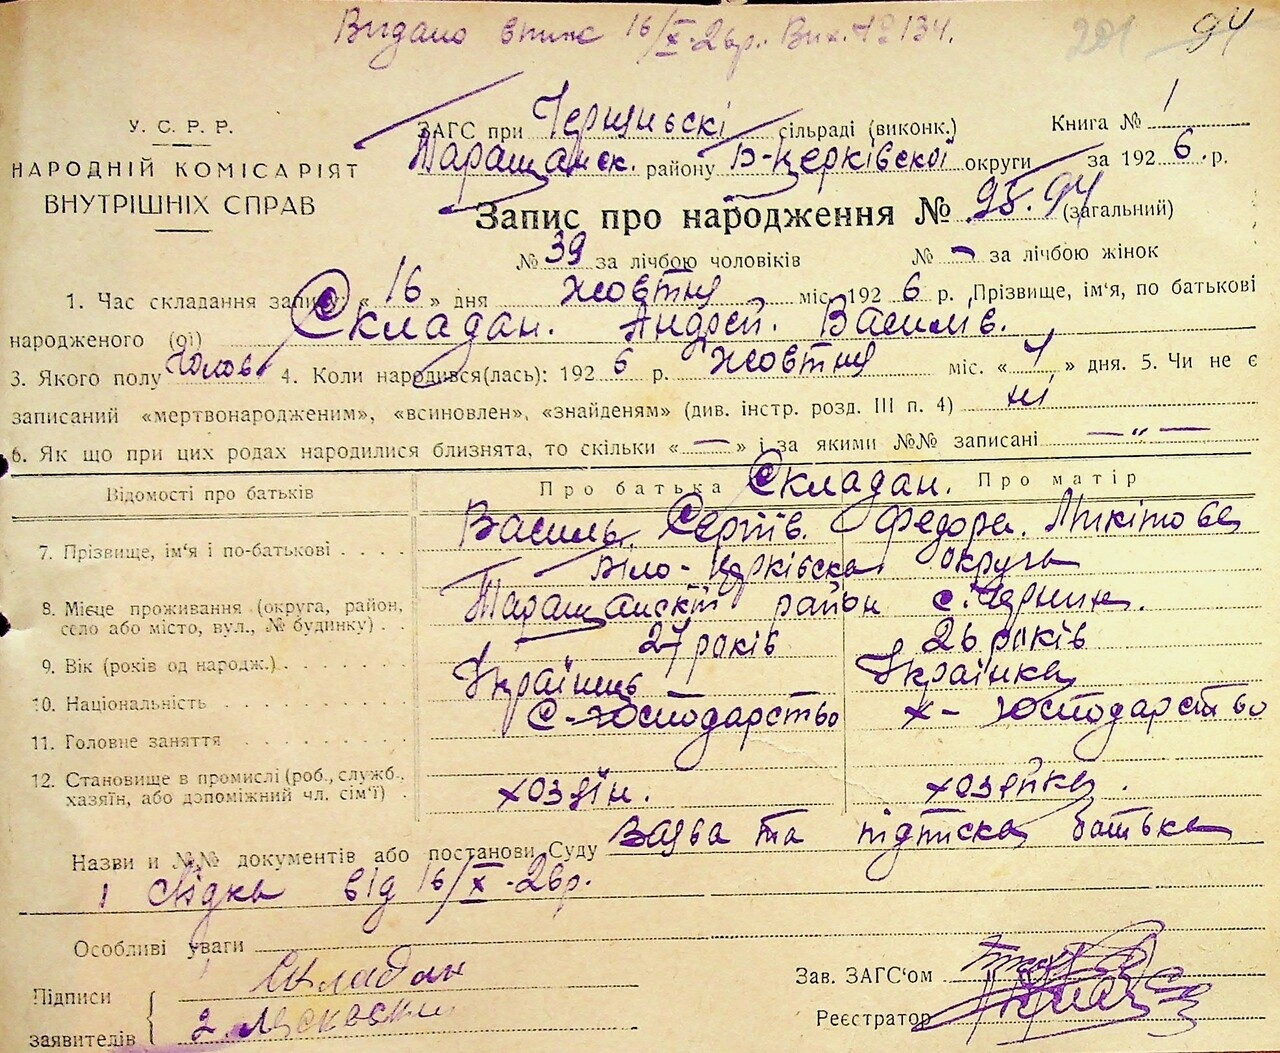 Видано впис 16/X-26р. Вих. № 134.
201 94
У. С. Р. Р.
НАРОДНІЙ КОМІСАРІЯТ
ВНУТРІШНІХ СПРАВ
ЗАГС при сільраді (виконк.) Книга № 1
Таращанск. району Б-Церківскої округи за 1926 р.
Запис про народження № 94 (загальний)
№ 39 за лічбою чоловіків № - за лічбою жінок
1. Час складання запису: « 16 » дня жовтня міс. 1926 р. Прізвище, ім'я, по батькові
народженого (ої) Складан. Андрей. Василів.
3. Якого полу Чолов 4. Коли народився(лась): 1926 р. жовтня міс. « 4 » дня. 5. Чи не є
записаний «мертвонародженим», «всиновлен», «знайденям» (див. інстр. розд. III п. 4) ні
6. Як що при цих родах народилися близнята, то скільки « — » і за якими №№ записані — „ —
Відомості про батьків Про батька Складан. Про матір
7. Прізвище, ім'я і по-батькові . . . . Василь. Сергіїв. Федора. Микітова
Біло-Церківска округа
8. Місце проживання (округа, район, село або місто, вул., № будинку) . . Таращанскій район с. Чернин.
9. Вік (років од народж.) . . . . 27 років 26 років
10. Національність . . . . Українець Українка
11. Головне заняття . . . . С-господарство х-господарство
12. Становище в промислі (роб., служб., хазяїн, або допоміжний чл. сім'ї) . хозяїн. хозяйка.
Назви и №№ документів або постанови Суду Заява та підписка батька
1 свідка від 16/X-26р.
Особливі уваги
Підписи заявителів
1 Складан
2.
Зав. ЗАГС'ом
Реєстратор